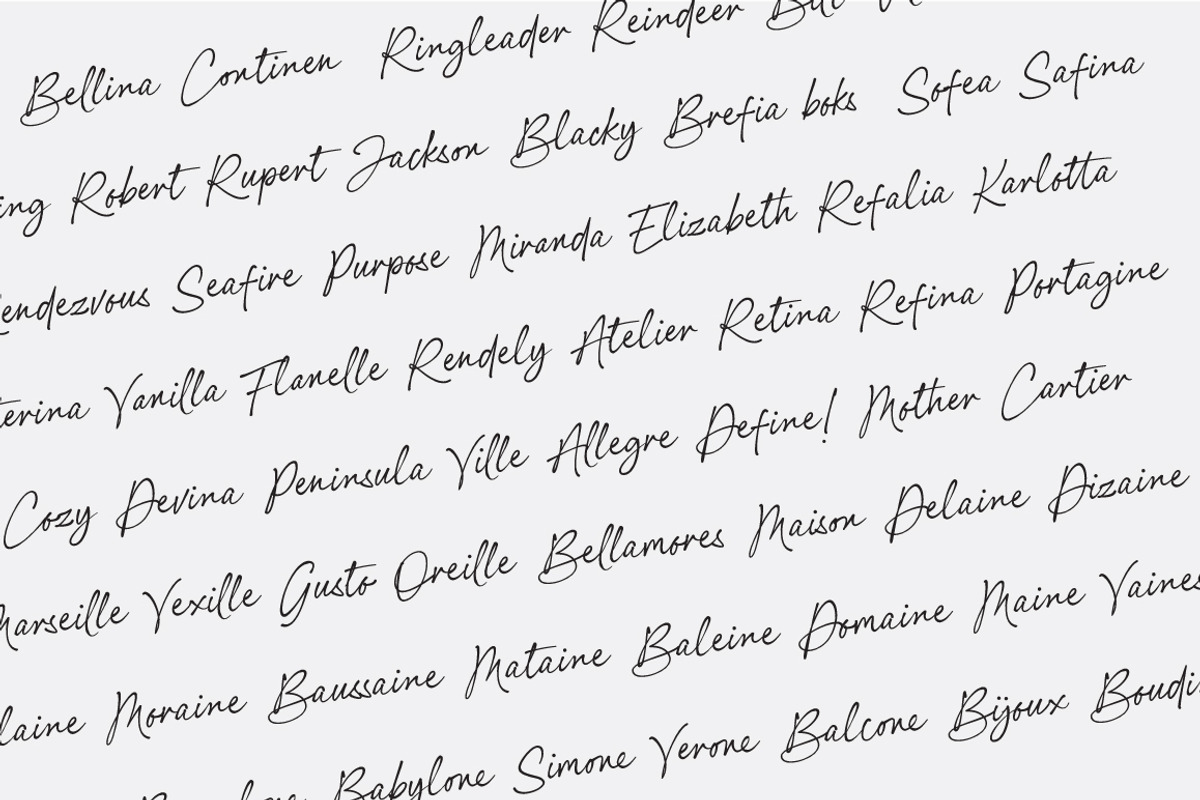 Bellina Continen Ringleader Reindeer
Robert Rupert Jackson Blacky Brefia boks Sofea Safina
Rendezvous Seafire Purpose Miranda Elizabeth Refalia Karlotta
terina Vanilla Flanelle Rendely Atelier Retina Refina Portagine
Cozy Devina Peninsula Ville Allegre Define! Mother Cartier
Marseille Vexille Gusto Oreille Bellamores Maison Delaine Dizaine
laine Moraine Baussaine Mataine Baleine Domaine Maine Vaines
Babylone Simone Verone Balcone Bijoux